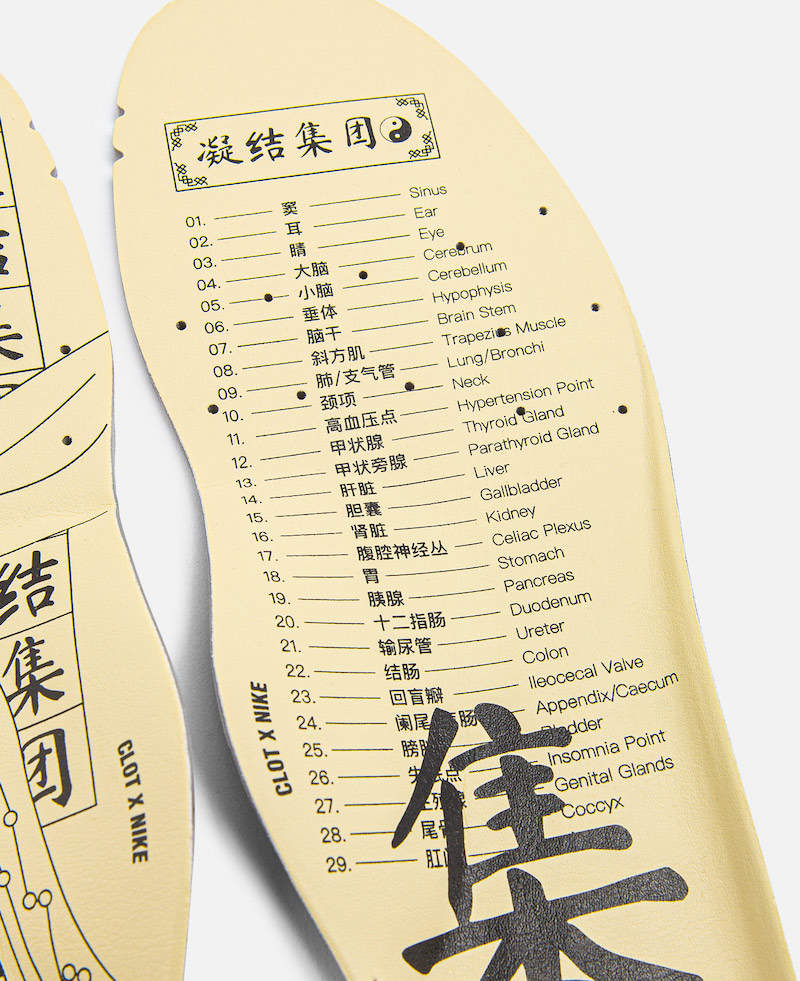 凝结集团
01. 窦 Sinus
02. 耳 Ear
03. 睛 Eye
04. 大脑 Cerebrum
05. 小脑 Cerebellum
06. 垂体 Hypophysis
07. 脑干 Brain Stem
08. 斜方肌 Trapezius Muscle
09. 肺/支气管 Lung/Bronchi
10. 颈项 Neck
11. 高血压点 Hypertension Point
12. 甲状腺 Thyroid Gland
13. 甲状旁腺 Parathyroid Gland
14. 肝脏 Liver
15. 胆囊 Gallbladder
16. 肾脏 Kidney
17. 腹腔神经丛 Celiac Plexus
18. 胃 Stomach
19. 胰腺 Pancreas
20. 十二指肠 Duodenum
21. 输尿管 Ureter
22. 结肠 Colon
23. 回盲瓣 Ileocecal Valve
24. 阑尾 肠 Appendix/Caecum
25. 膀 Bladder
26. 失 点 Insomnia Point
27. Genital Glands
28. 尾骨 Coccyx
29. 肛
CLOT X NIKE
集
结
集
团
CLOT X NIKE